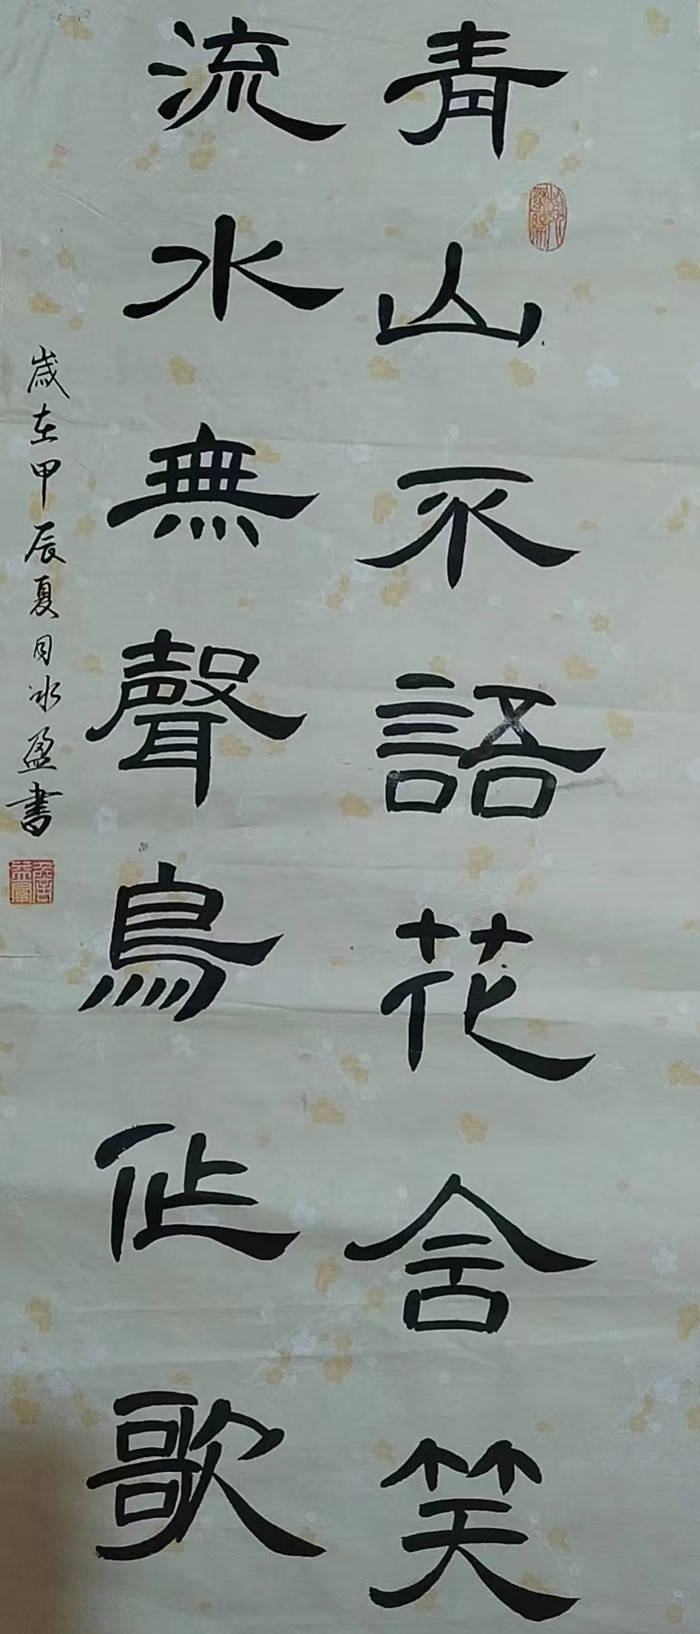 青山不語花含笑
流水無聲鳥作歌
歲在甲辰夏月冰盈書